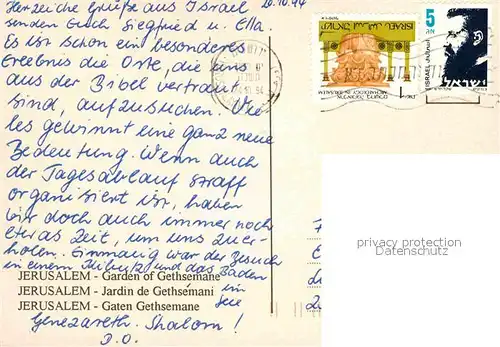 20.10.94
Herzliche Grüße aus Israel
senden Euch Siegfried u. Ella.
Es ist schon ein besonderes
Erlebnis die Orte, die uns
aus der Bibel vertraut
sind, aufzusuchen. Vie-
les gewinnt eine ganz neue
Bedeutung. Wenn auch
der Tagesablauf straff
organisiert ist, haben
wir doch auch immer noch
etwas Zeit, um uns zu er-
holen. Einmalig war der Besuch
in einem Kibutz und das Baden
im See
Genezareth. Shalom!
JERUSALEM - Garden of Gethsemane
JERUSALEM - Jardin de Gethsémani
JERUSALEM - Gaten Gethsemane
ISRAEL
5
ISRAEL
ישראל
privacy protection
Datenschutz